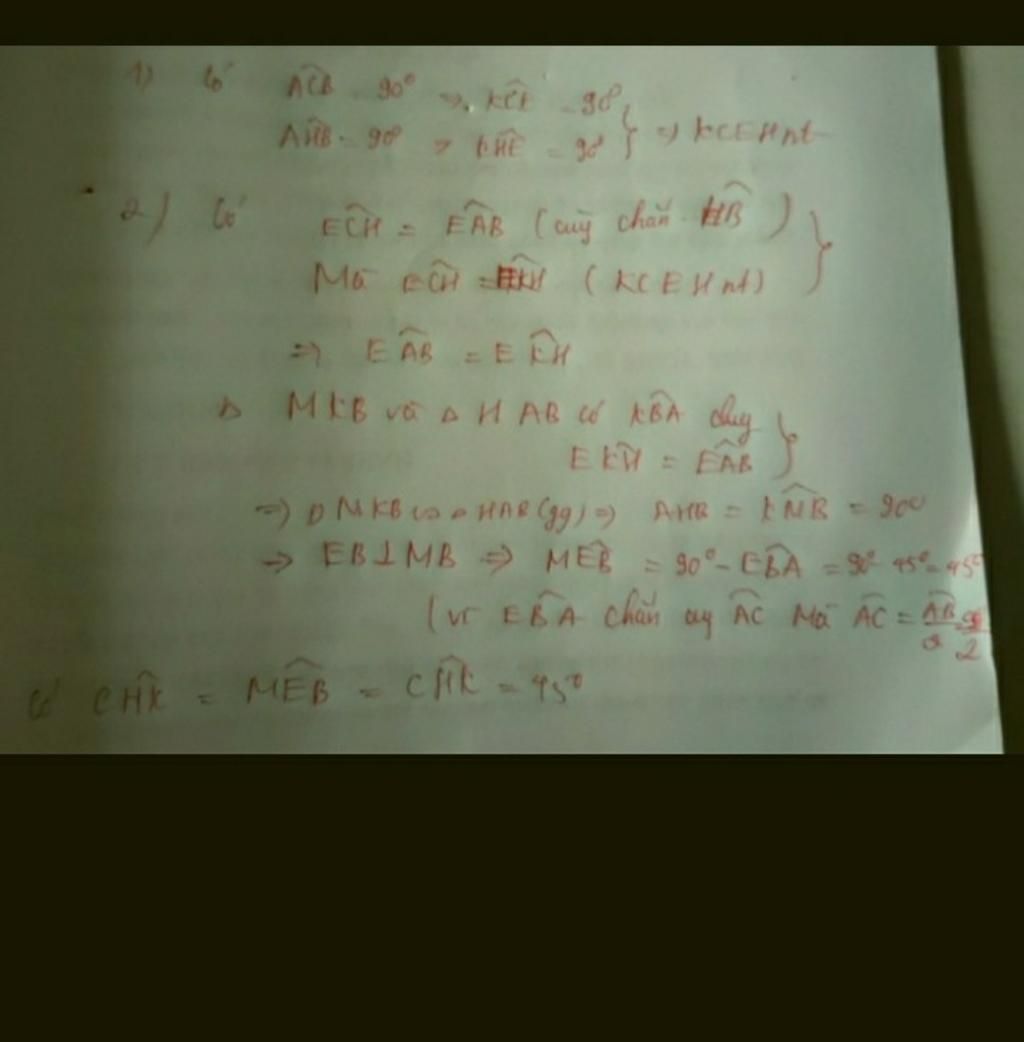 1) Có ACB̂ = 90° => KCÊ = 90°
AHB̂ = 90° => KHÊ = 90° } => KCEH nt
2) Có ECĤ = EAB̂ (cùng chắn HB̂)
Mà ECĤ = EKĤ (KCEH nt) }
=> EAB̂ = EKĤ
Δ MKB và Δ HAB có KBÂ chung
EKĤ = EAB̂ }
=> Δ MKB ∽ Δ HAB (gg) => AHB̂ = KMB̂ = 90°
=> EB ⊥ MB => MEB̂ = 90° - EBÂ = 90° - 45° = 45°
(vì EBÂ chắn cung AĈ Mà AĈ = AB̂/2
Có CHK̂ = MEB̂ = CHK̂ = 45°